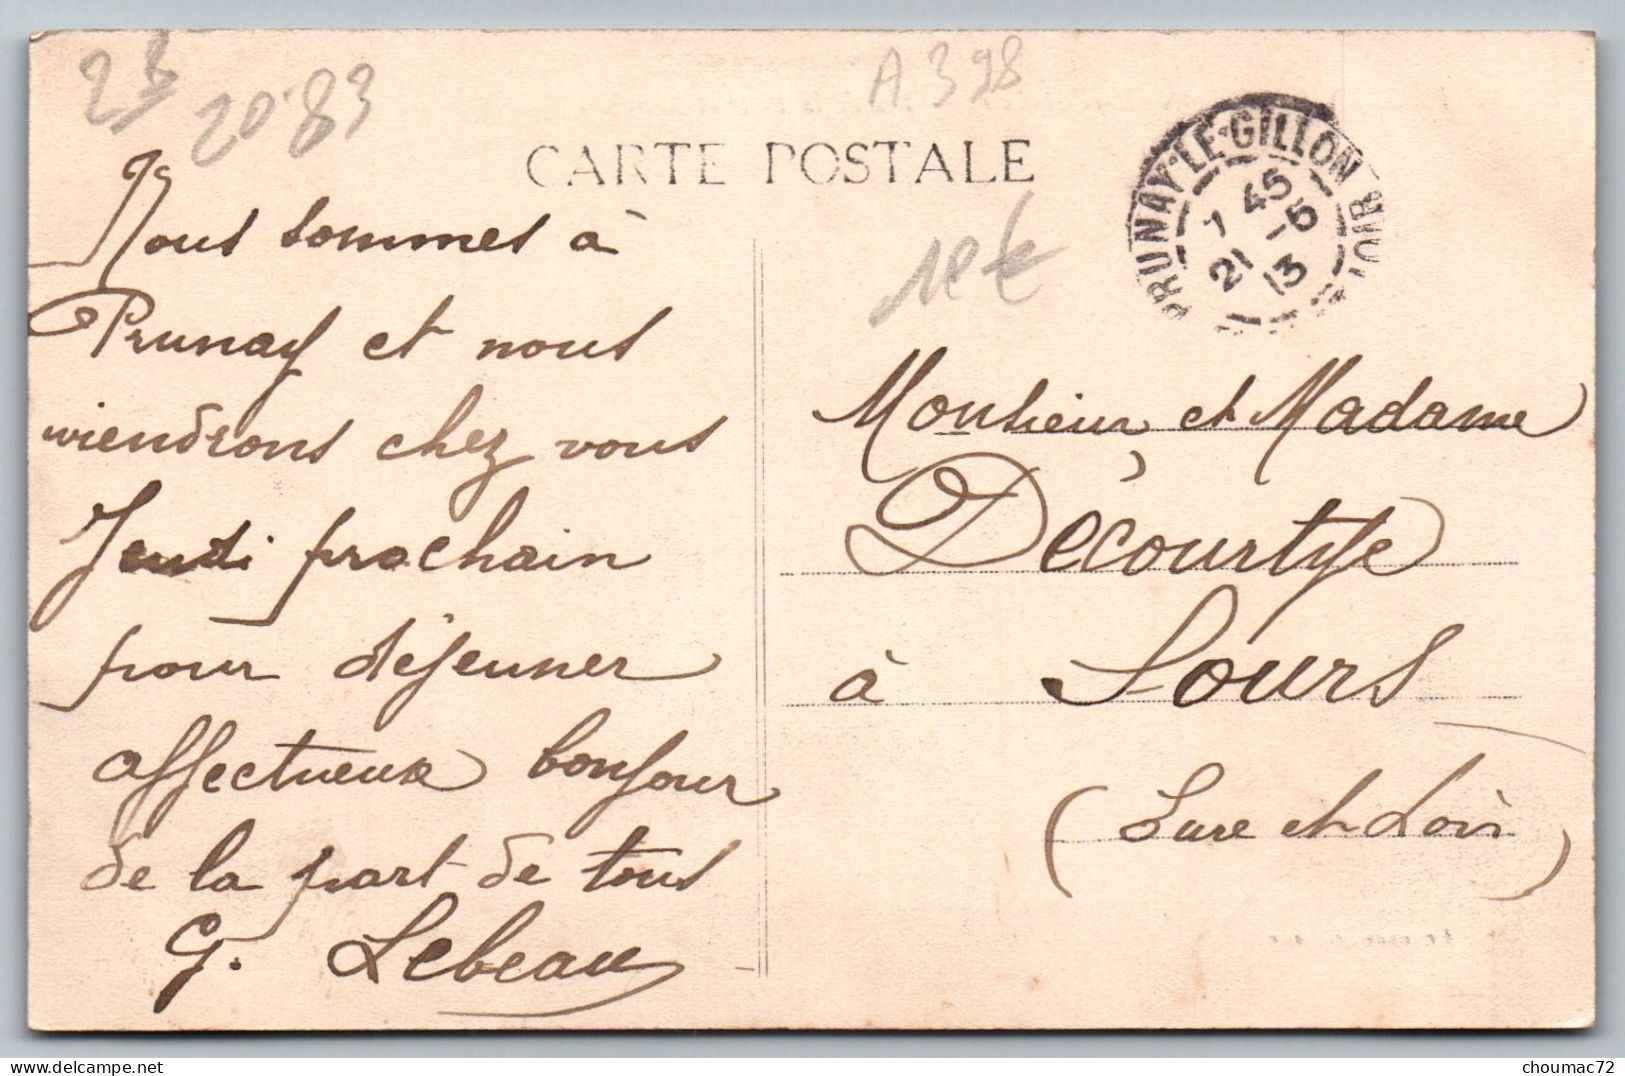 23
20.83
A.398
CARTE POSTALE
PRUNAY-LE-GILLON
7 45
21 -5
13
Nous sommes à
Prunay et nous
viendrons chez vous
Jeudi prochain
pour déjeuner
affectueux bonjour
de la part de tous
G. Lebeau
Monsieur et Madame
Décourtye
à Sours
(Eure et Loir)
choumac72